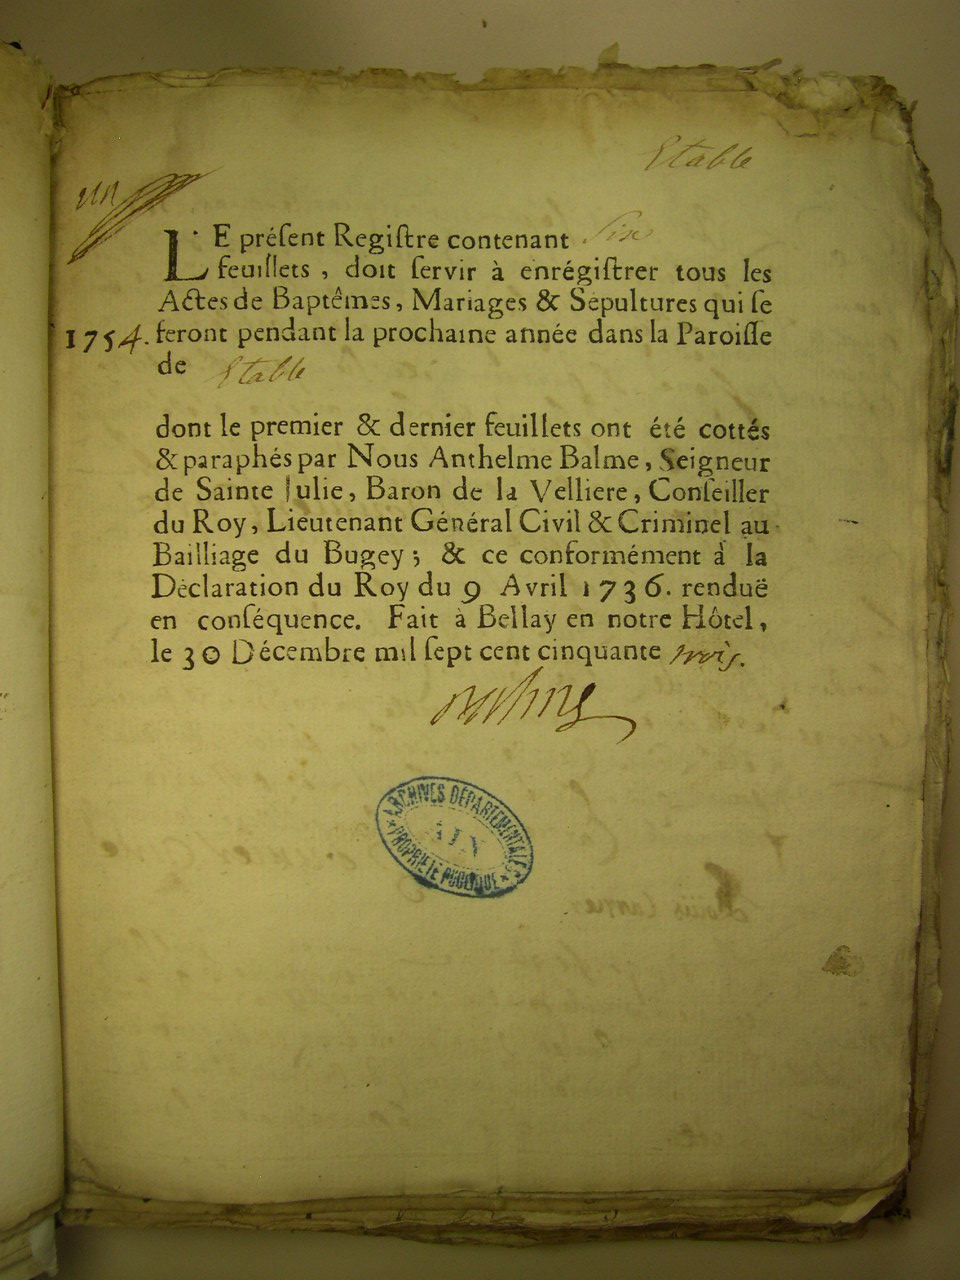 Etable
un
LE préſent Regiſtre contenant Six
feuillets, doit ſervir à enrégiſtrer tous les
Actes de Baptêmes, Mariages & Sépultures qui ſe
1754. feront pendant la prochaine année dans la Paroiſſe
de Etable
dont le premier & dernier feuillets ont été cottés
& paraphés par Nous Anthelme Balme, Seigneur
de Sainte Julie, Baron de la Velliere, Conſeiller
du Roy, Lieutenant Général Civil & Criminel au
Bailliage du Bugey; & ce conformément à la
Déclaration du Roy du 9 Avril 1736. renduë
en conſéquence. Fait à Bellay en notre Hôtel,
le 30 Décembre mil ſept cent cinquante trois.
Balme
ARCHIVES DEPARTEMENTALES
AIN
PROPRIETE PUBLIQUE